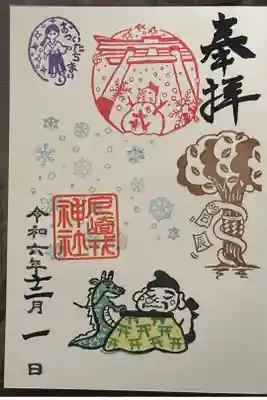 奉拝
辰
尼崎戎
神社
令和六年十二月 一 日